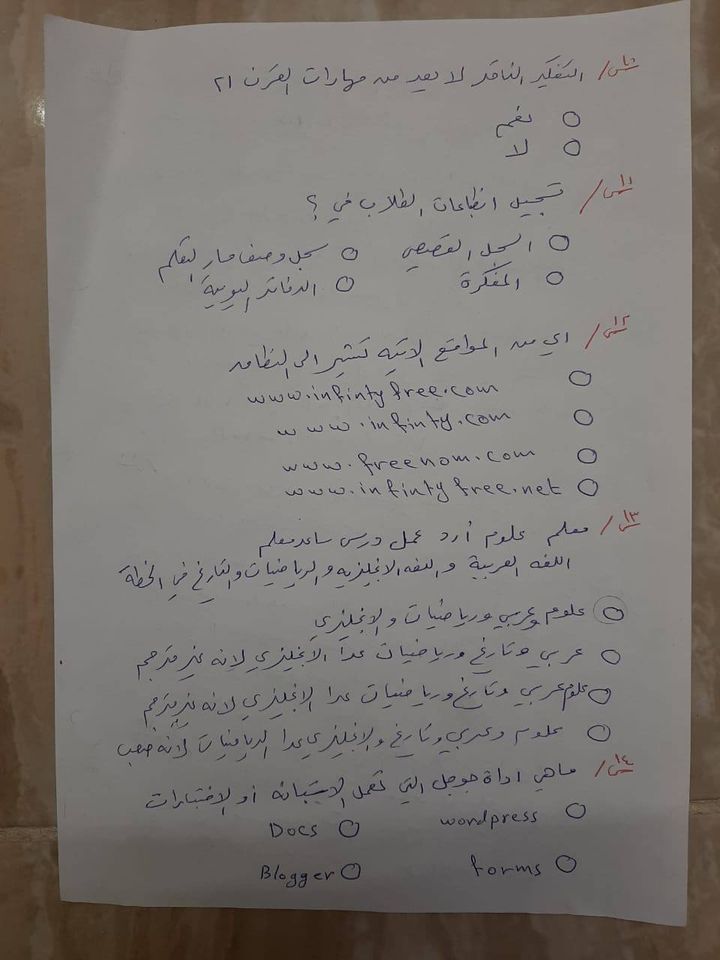 س١٠/ التفكير الناقد لا يعد من مهارات القرن ٢١
نعم
لا
س١١/ تسجيل انطباعات الطلاب في ؟
السجل القصصي سجل وصف سار التعلم
المفكرة الدفاتر اليومية
س١٢/ اي من المواقع الاتيه تشير الى النطاق
www.infintyfree.com
www.infinty.com
www.freenom.com
www.infintyfree.net
س١٣/ معلم علوم أرد عمل درس ساعد معلم
اللغه العربية و اللغه الانجليزيه و الرياضيات والتارغ في الخطة
علوم وعربي ورياضيات والانجليزي
عربي وتارغ ورياضيات عدا الانجليزي لانه غير مترجم
علوم عربي وتارغ ورياضيات عدا الانجليزي لانه غير مترجم
علوم وعربي وتارغ والانجليزي عدا الرياضيات لانه صعب
س١٤/ ماهي اداة جوجل التي تعمل الاستبانه أو الاختبارات
wordpress Docs
forms Blogger